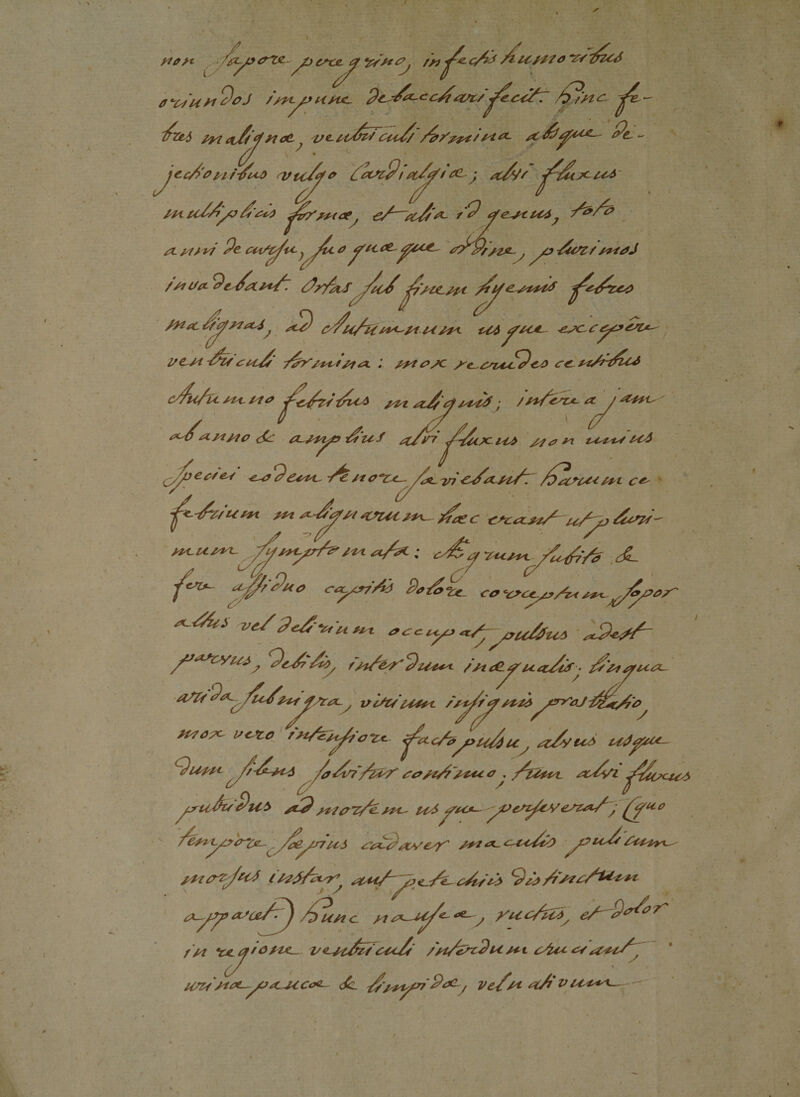 non sapore peregrino, infectis humoribus
oriundos impune debacchari fecit. Hinc fe-
bres malignæ, ventriculi tormina absque de-
jectionibus vulgo Cardialgiæ; alvi fluxus
multiplicis formæ, et alia id genus, toto
anni decursu, suo quæque ordine, plurimos
invadebant. Ortas sub finem hyemis febres
malignas, ad Autumnum usque excepêre
ventriculi tormina: mox recrudescentibus
Autumno febribus malignis; interea jam
ab anno & amplius alvi fluxus non unius
speciei eodem tenore sæviebant. Harum ce
febrium malignarum hæc erant ut pluri-
mum symptomata: Ægrum subito &
fere assiduo capitis dolore correptum, sopor
altus vel delirium occupat, pulsus adest
parvus, debilis, interdum inæqualis; lingua
arida subnigra, virium insignis prostratio,
mox vero intensiore facto pulsu, alvus usque
dum silens solvitur continuo; tum alvi fluxus
putridus ad mortem usque perseverat; (quo
tempore sæpius cadaver maculis pulicum
morsus instar, aut petechiis distinctum
apparet.) Hunc nauseæ, ructus, et dolor
in regione ventriculi interdum cruciant,
urinæ paucæ & limpidæ, vel in alivum